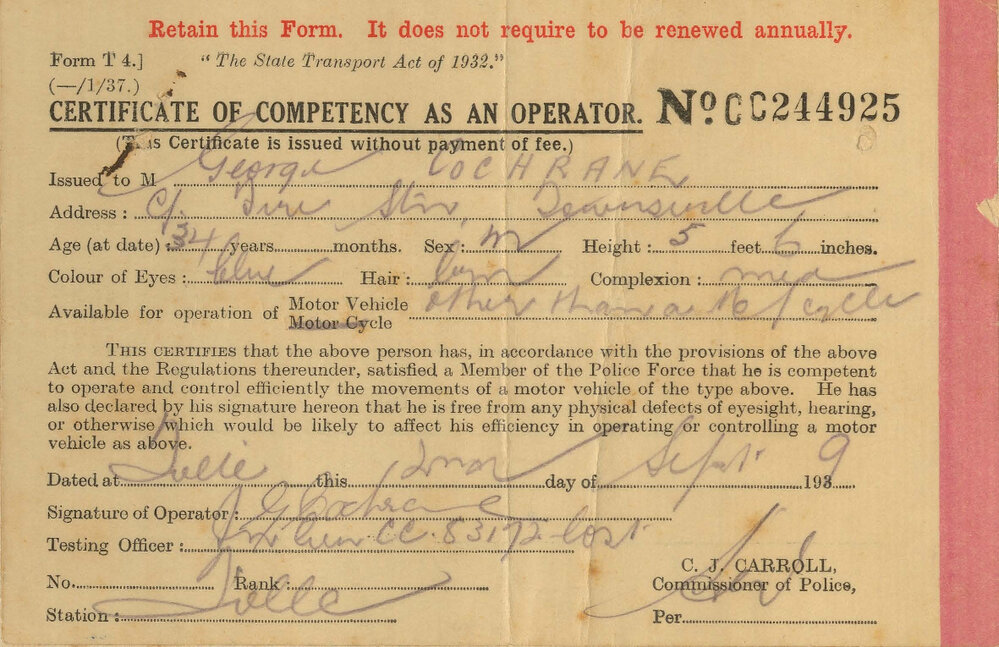 Retain this Form. It does not require to be renewed annually.
Form T 4.] "The State Transport Act of 1932."
(—/1/37.)
CERTIFICATE OF COMPETENCY AS AN OPERATOR. No. CC244925
(This Certificate is issued without payment of fee.)
Issued to M George COCHRANE
Address : c/. Fire Stn, Townsville
Age (at date) : 34 years months. Sex : m Height : 5 feet 6 inches.
Colour of Eyes : blue Hair : Complexion : med
Available for operation of Motor Vehicle Motor Cycle other than a M/cycle
THIS CERTIFIES that the above person has, in accordance with the provisions of the above
Act and the Regulations thereunder, satisfied a Member of the Police Force that he is competent
to operate and control efficiently the movements of a motor vehicle of the type above. He has
also declared by his signature hereon that he is free from any physical defects of eyesight, hearing,
or otherwise which would be likely to affect his efficiency in operating or controlling a motor
vehicle as above.
Dated at Tville this 2nd day of Sept. 1939
Signature of Operator : G Cochrane
Testing Officer : CC. 83172 lost
C. J. CARROLL,
No. Rank : Commissioner of Police,
Station : Tville Per